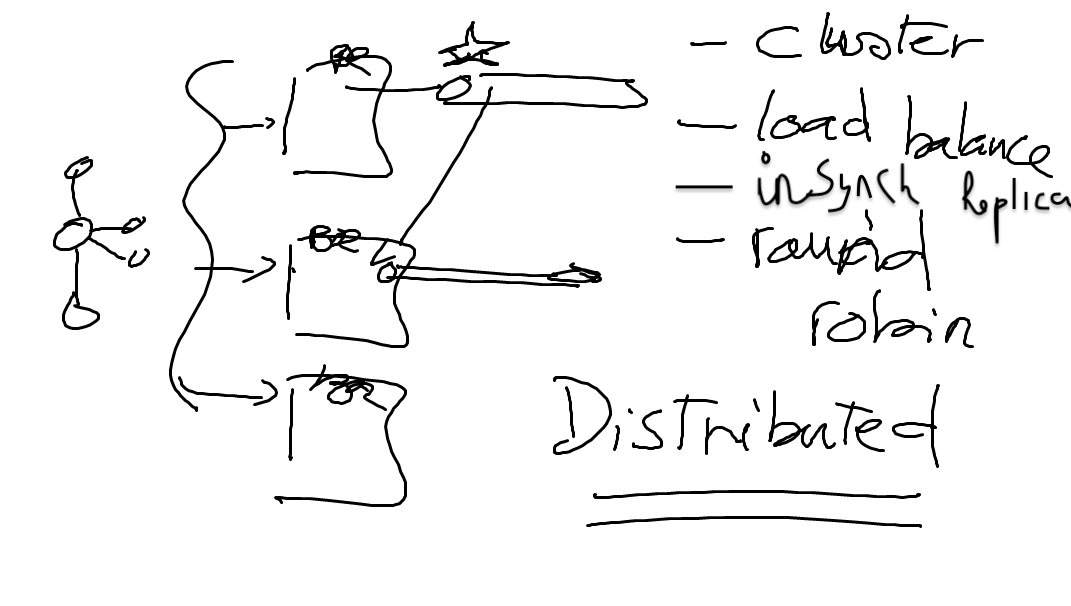 - cluster
- load balance
- insynch Replica
- round
robin
Distributed